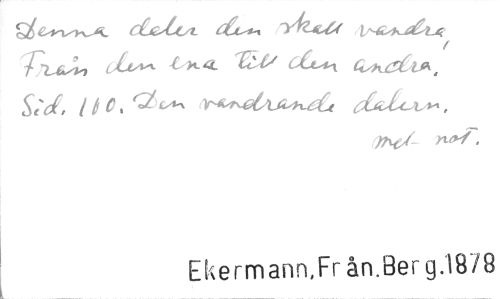 Denna daler den skall vandra,
Från den ena till den andra.
Sid. 160. Den vandrande dalern.
mel not.
Ekermann,Från.Berg.1878